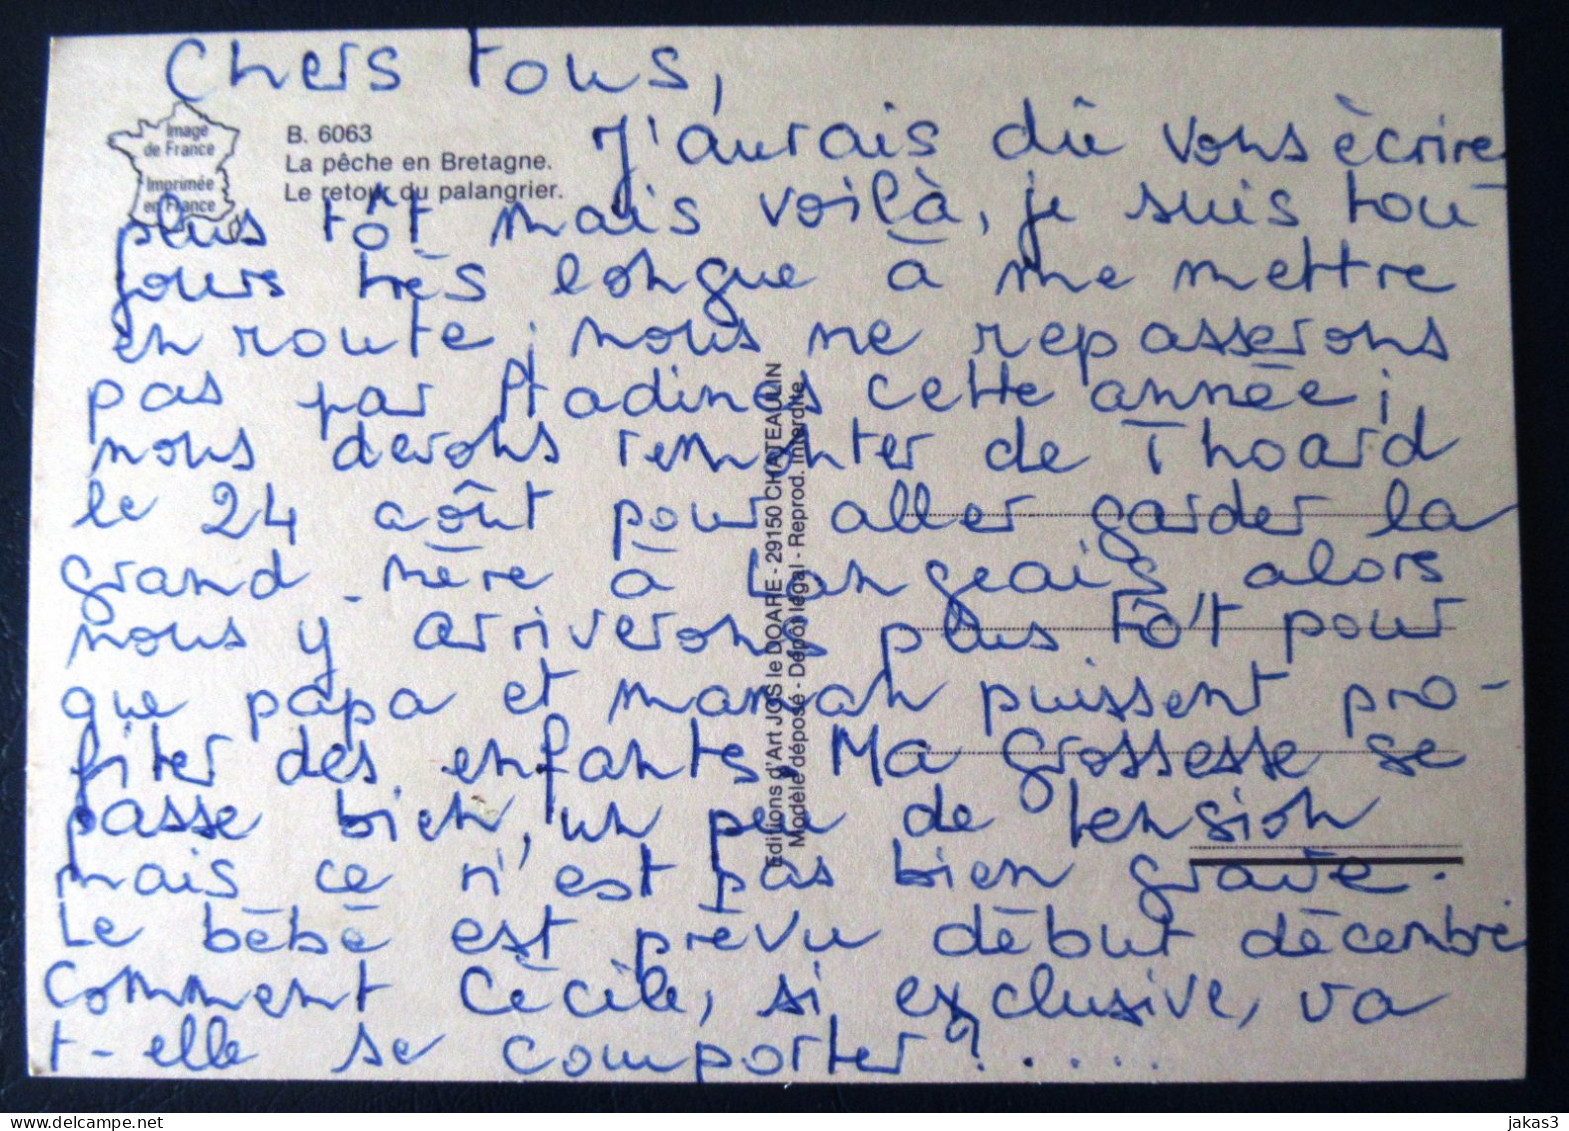 Chers tous,
Image
de France
Imprimée
en France
B. 6063
La pêche en Bretagne.
Le retour du palangrier.
J'aurais dû vous écrire
plus tôt mais voilà, je suis tou-
jours très longue à me mettre
en route ; nous ne repasserons
pas par cette année ;
nous devons remonter de Thoard
le 24 août pour aller garder la
grand-mère à Langeais, alors
nous y arriverons plus tôt pour
que papa et maman puissent pro-
fiter des enfants. Ma grossesse se
passe bien, un peu de tension
mais ce n'est pas bien grave.
Le bébé est prévu début décembre
comment Cécile, si exclusive, va
t-elle se comporter ?.....
Editions d'Art JOS le DOARE - 29150 CHATEAULIN
Modèle déposé - Dépôt légal - Reprod. interdite
jakas3